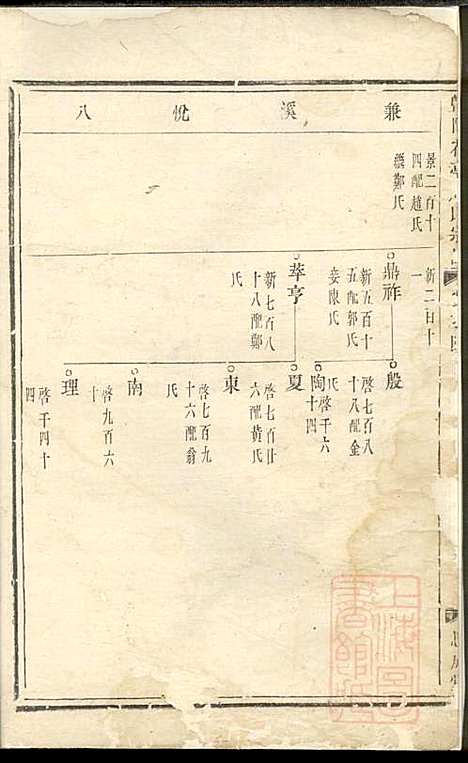 兼溪悅八
景二百十
四配趙氏
繼鄭氏
新二百十
一
鼎祚
新五百十
五配郭氏
妾陳氏
萃亨
新七百八
十八配鄭
氏
殷
啓七百八
十八配金
氏
陶
啓千六
十四
夏
啓七百廿
六配黃氏
東
啓七百九
十六配翁
氏
南
啓九百六
十
理
啓千四十
四